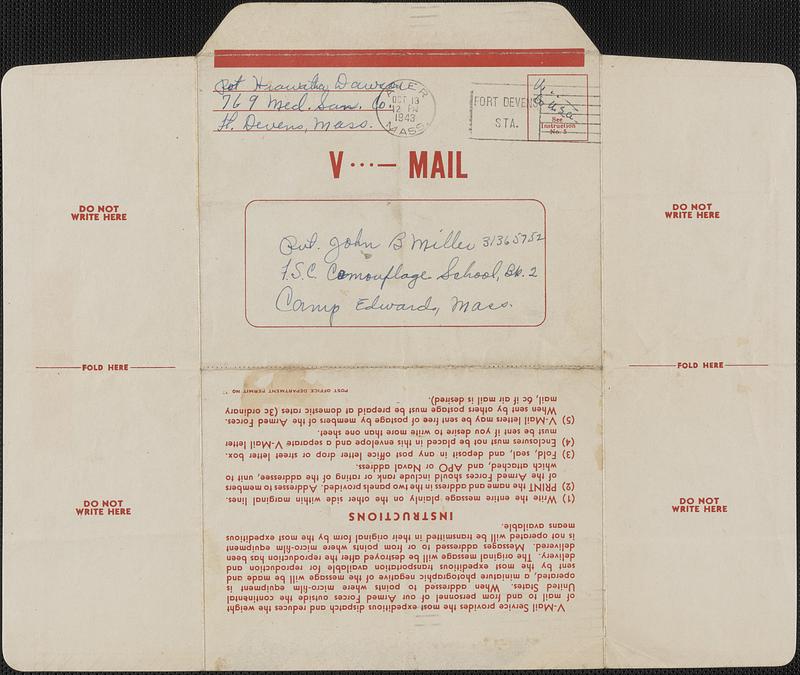 Pvt Hiawatha Dawson
769 Med. San. Co.
Ft. Devens, Mass.
AYER
OCT 13
12 PM
1943
MASS.
FORT DEVENS
STA.
See
Instruction
No. 5
V···— MAIL
DO NOT
WRITE HERE
DO NOT
WRITE HERE
Pvt. John B Miller 31365752
F.S.C. Camouflage School, Bk. 2
Camp Edwards, Mass.
FOLD HERE
FOLD HERE
DO NOT
WRITE HERE
DO NOT
WRITE HERE
V-Mail Service provides the most expeditious dispatch and reduces the weight
of mail to and from personnel of our Armed Forces outside the continental
United States. When addressed to points where micro-film equipment is
operated, a miniature photographic negative of the message will be made and
sent by the most expeditious transportation available for reproduction and
delivery. The original message will be destroyed after the reproduction has been
delivered. Messages addressed to or from points where micro-film equipment
is not operated will be transmitted in their original form by the most expeditious
means available.
INSTRUCTIONS
(1) Write the entire message plainly on the other side within marginal lines.
(2) PRINT the name and address in the two panels provided. Addresses to members
of the Armed Forces should include rank or rating of the addressee, unit to
which attached, and APO or Naval address.
(3) Fold, seal, and deposit in any post office letter drop or street letter box.
(4) Enclosures must not be placed in this envelope and a separate V-Mail letter
must be sent if you desire to write more than one sheet.
(5) V-Mail letters may be sent free of postage by members of the Armed Forces.
When sent by others postage must be prepaid at domestic rates (3c ordinary
mail, 6c if air mail is desired).
POST OFFICE DEPARTMENT PERMIT NO